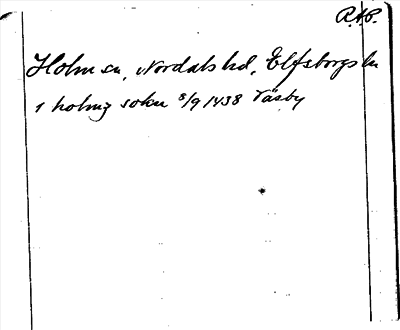 R.A.P.
Holm sn, Nordals hd, Elfsborgs ln
i holmz sokn 8/9 1438 Väsby